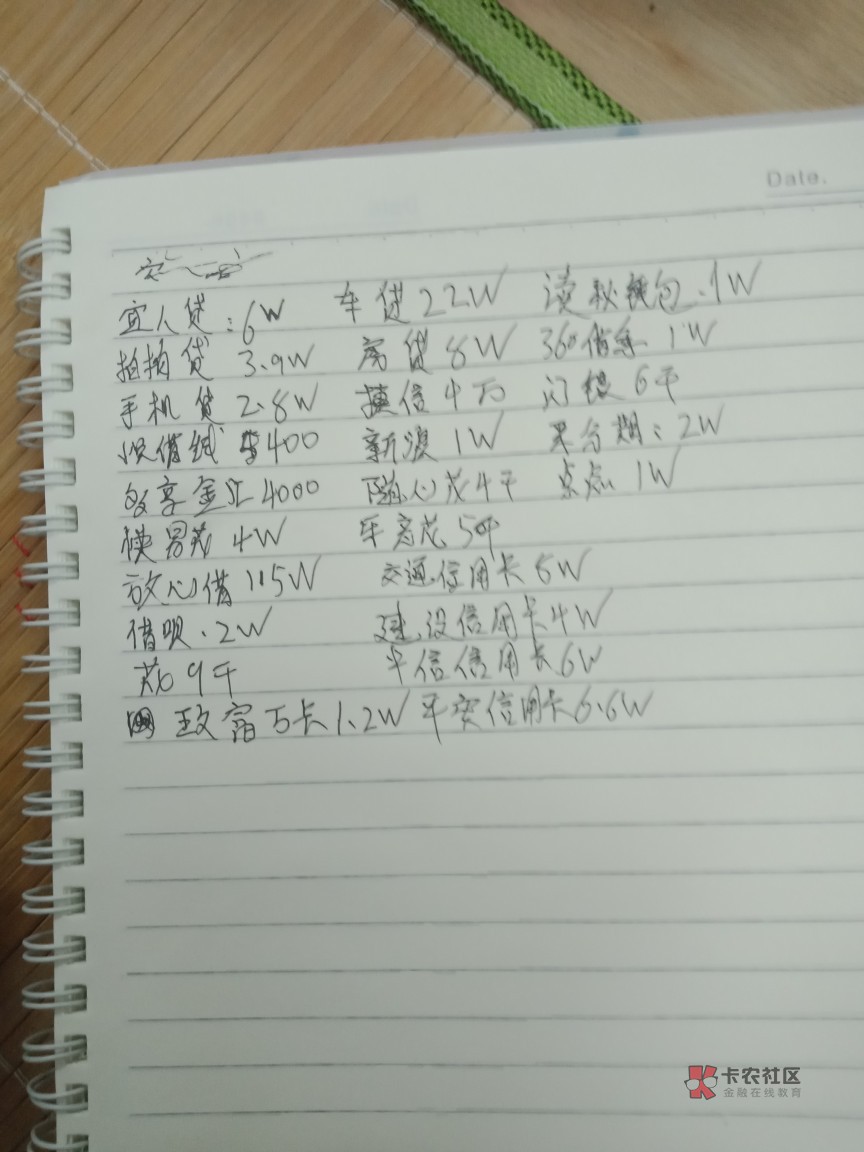 Date.
宜人贷：6W 车贷22W 读秒钱包.1W
拍拍贷 3.9W 房贷8W 360借条 1W
手机贷 2.8W 4万 闪银6千
400 新浪1W 来分期：2W
金汇4000 随心花4千 点点 1W
4W
放心借 1.5W 交通信用卡 W
借呗.2W 建设信用卡4W
花 9千 中信信用卡6W
万卡1.2W 平安信用卡6.6W
卡农社区
金融在线教育